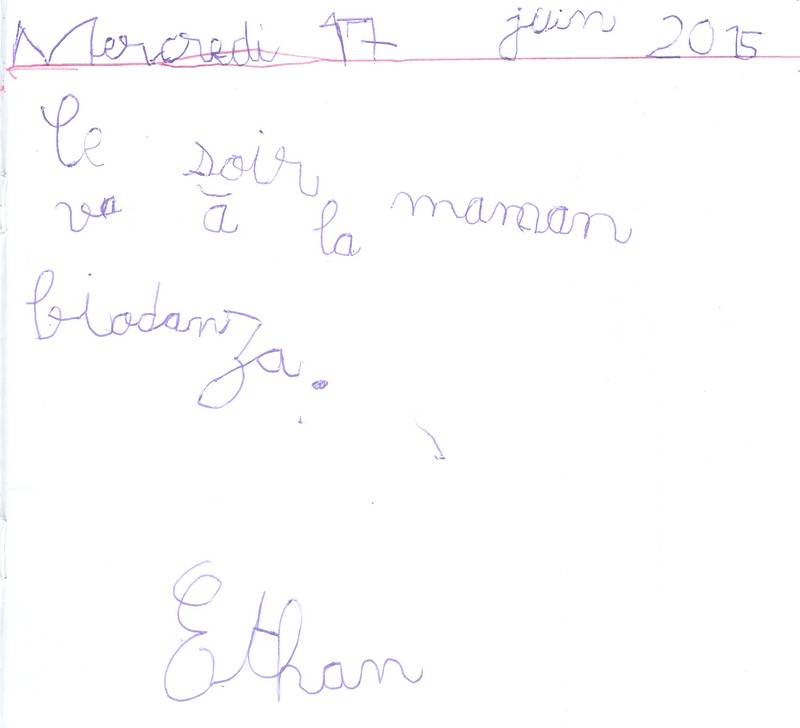 Mercredi 17 juin 2015
Ce soir maman
va à la
biodanza.
Ethan